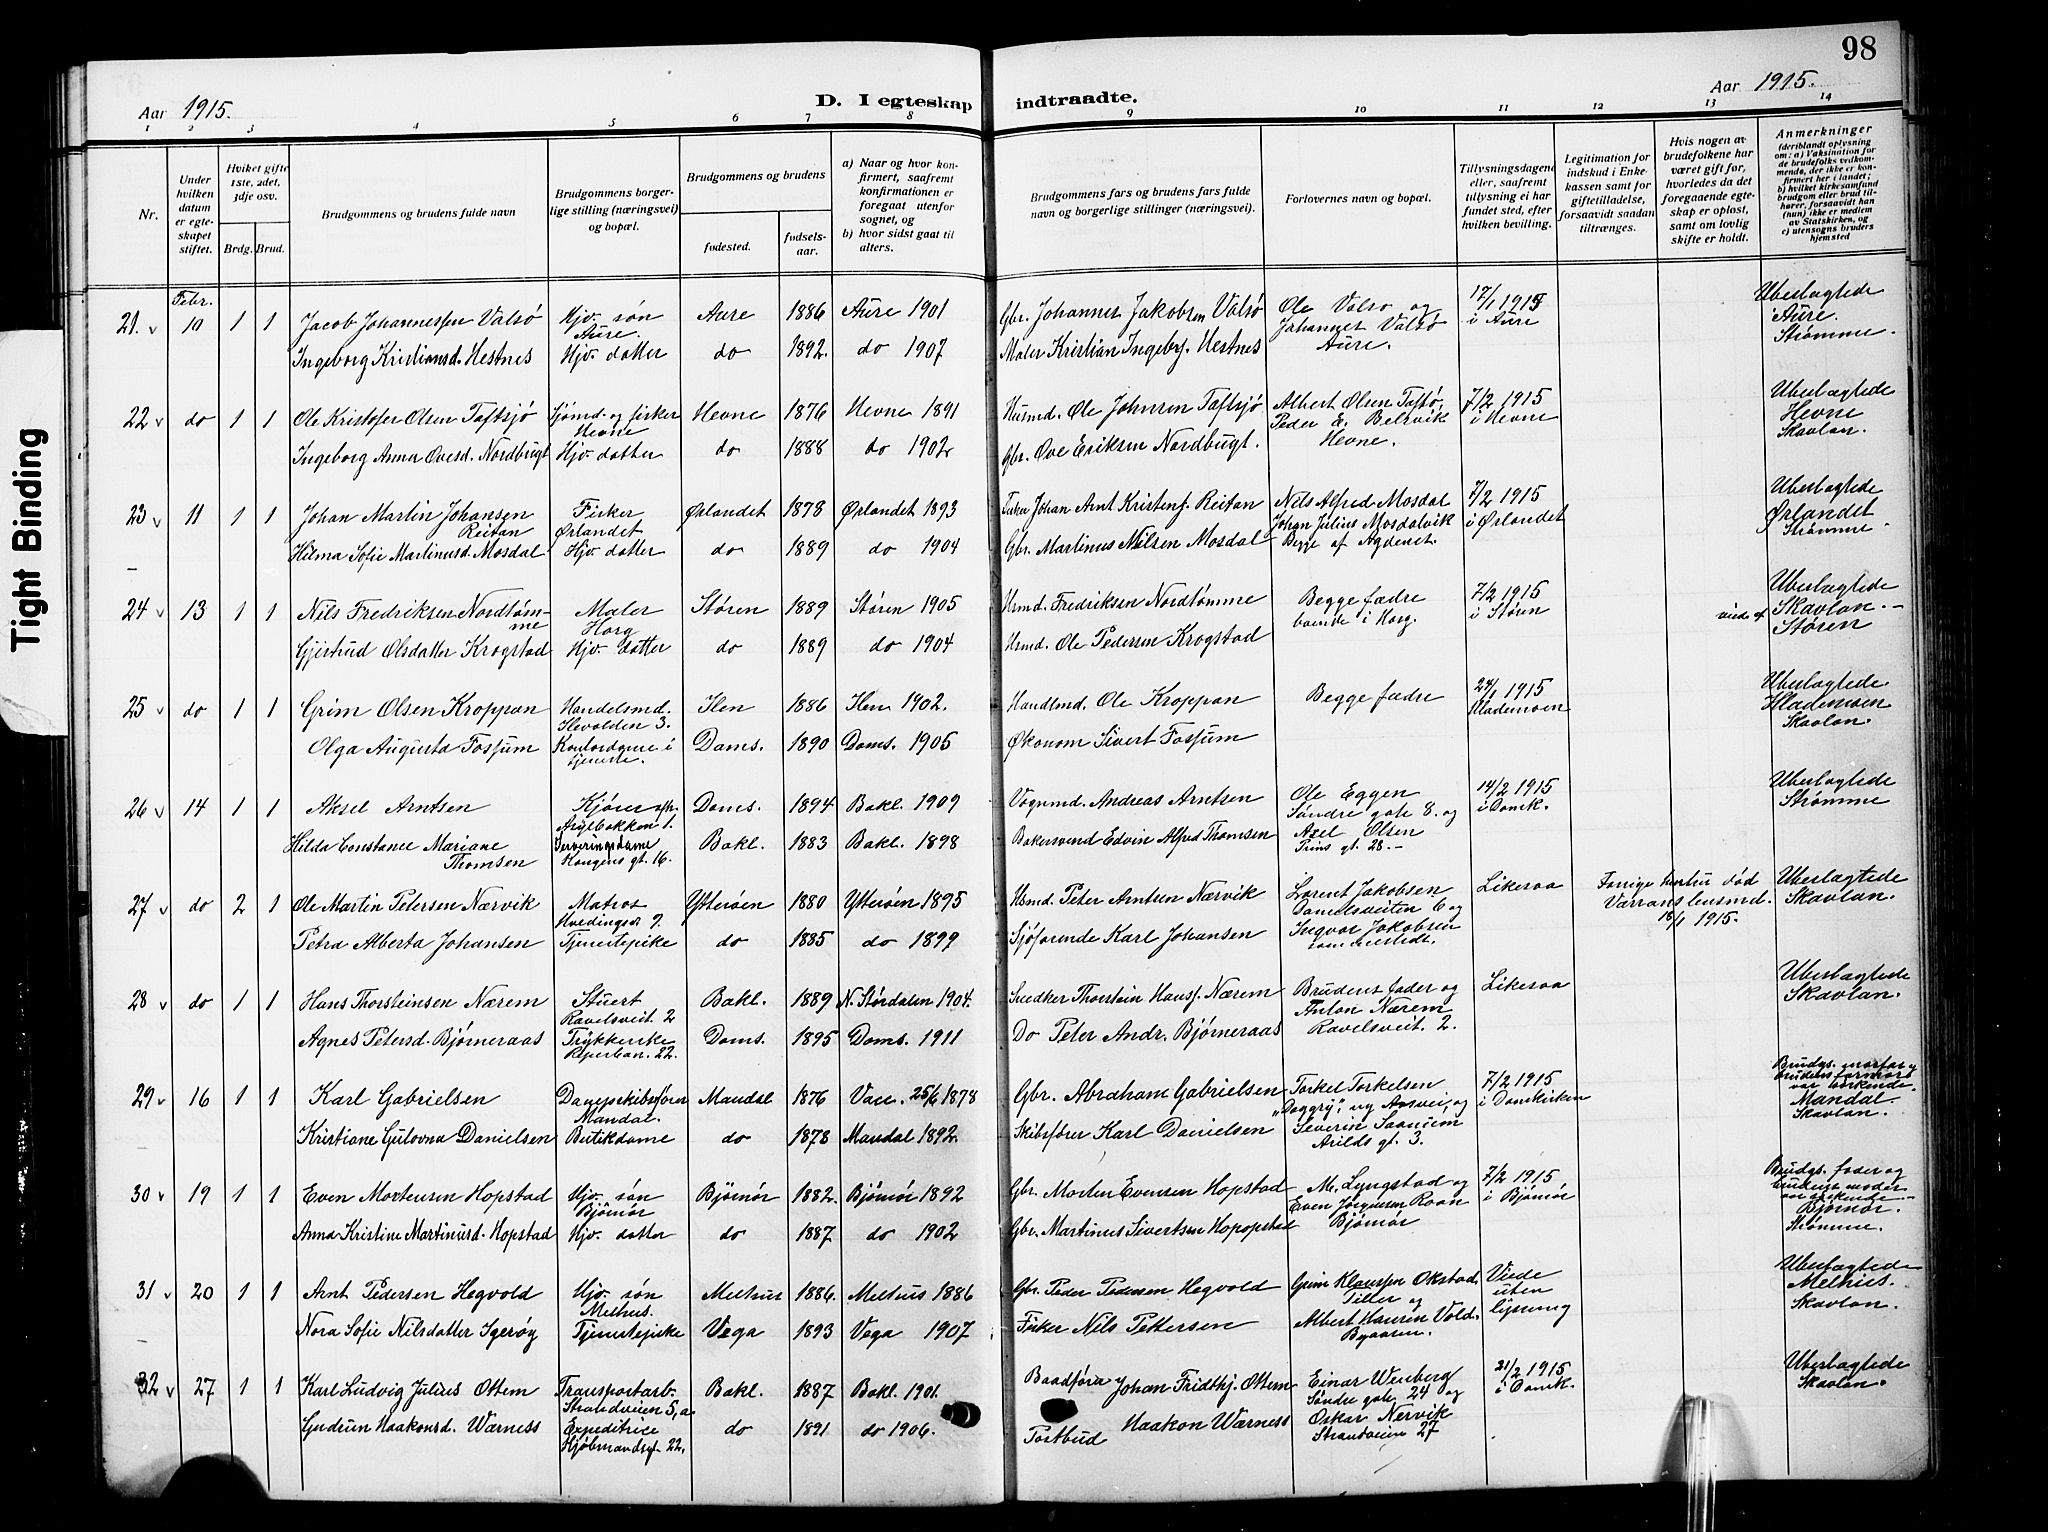 98
Aar 1915.
D. I egteskap indtraadte.
Aar 1915.
1 2 3 4 5 6 7 8 9 10 11 12 13 14
Nr.
Under hvilken datum er egteskapet stiftet.
Hviket gifte 1ste, 2det, 3dje osv.
Brdg. Brud.
Brudgommens og brudens fulde navn
Brudgommens borgerlige stilling (næringsvei) og bopæl.
Brudgommens og brudens
fødested.
fødselsaar.
a) Naar og hvor konfirmert, saafremt konfirmationen er foregaat utenfor sognet, og
b) hvor sidst gaat til alters.
Brudgommens fars og brudens fars fulde navn og borgerlige stillinger (næringsvei).
Forlovernes navn og bopæl.
Tillysningsdagene eller, saafremt tillysning ei har fundet sted, efter hvilken bevilling.
Legitimation for indskud i Enkekassen samt for giftetilladelse, forsaavidt saadan tiltrænges.
Hvis nogen av brudefolkene har været gift før, hvorledes da det foregaaende egteskap er opløst, samt om lovlig skifte er holdt.
Anmerkninger
(deriblandt oplysning om: a) Vaksination for de brudefolks vedkommende, der ikke er konfirmert her i landet; b) hvilket kirkesamfund brudgom eller brud tilhører, forsaavidt han (hun) ikke er medlem av Statskirken, og c) utensogns bruders hjemsted
Febr.
21. 10 1 1 Jacob Johannessen Valsö Hjv. søn Aure 1886 Aure 1901 Gbr. Johannes Jakobsen Valsö Ole Valsö og 17/1 1915 Ubeslagtede
Aure. Johannes Valsö i Aure Aure.
Ingeborg Kristiansd. Hestnes Hjv. datter do 1892. do 1907 Maler Kristian Ingebr. Hestnes Aure. Strømme.
22 do 1 1 Ole Kristofer Olsen Taftsjö Sjömd. og fisker Hevne 1876 Hevne 1891 Husmd. Ole Johnsen Taftsjö Albert Olsen Taftsö, 7/2 1915 Ubeslagtede
Hevne Peder E. Belsvik i Hevne Hevne
Ingeborg Anna Ovesd. Nordbugt Hjv. datter do 1888 do 1902 Gbr. Ove Eriksen Nordbugt. Hevne. Skavlan.
23 11 1 1 Johan Martin Johansen Fisker Ørlandet 1878 Ørlandet 1893 Fisker Johan Arnt Kristensj. Reitan Nils Alfred Mosdal 7/2 1915 Ubeslagtede
Reitan Ørlandet Johan Julius Mosdalvik i Ørlandet Ørlandet
Hilma Sofie Martinusd. Mosdal Hjv. datter do 1889 do 1904 Gbr. Martinus Nilsen Mosdal Begge af Agdenes. Strømme.
24 13 1 1 Nils Fredriksen Nordtömme Maler Støren 1889 Støren 1905 Husmd. Fredriksen Nordtømme Begge fædre 7/2 1915 Ubeslagtede
Horg boende i Horg. i Støren viede af Skavlan.
Gjertrud Olsdatter Krogstad Hjv. datter do 1889 do 1904 Husmd. Ole Pedersen Krogstad Støren
25 do 1 1 Grim Olsen Kroppan Handelsmd. Ilen 1886 Ilen 1902. Handlmd. Ole Kroppan Begge fædre 24/1 1915 Ubeslagtede
Ilevolden 3. Hlademoen Hlademoen
Olga Augusta Fossum Kontordame i tjeneste. Doms. 1890 Doms. 1905 Økonom Sivert Fossum Skavlan.
26 14 1 1 Aksel Arntsen Kjører Doms. 1894 Bakl. 1909 Vognmd. Andreas Arntsen Ole Eggen 14/2 1915 Ubeslagtede
Søndre gate 8. og i Domk. Strømme
Hilda Constance Mariane Thomsen Serveringsdame Kongens gt. 16. Bakl. 1883 Bakl. 1898 Bakersvend Edvin Alfred Thomsen Axel Olsen
Prins gt. 28.
27 do 2 1 Ole Martin Petersen Nærvik Matros Ytterøen 1880 Ytterøen 1895 Husmd. Peter Arntsen Nærvik Lorent Jakobsen Likesaa Forrige hustru död Ubeslagtede
Danielsveiten 6 og Skavlan.
Petra Alberta Johansen Tjenestepike do 1885 do 1899 Sjöfarende Karl Johansen Ingvar Jakobsen 18/1 1915.
sammestedt.
28 do 1 1 Hans Thorsteinsen Nærem Stuert Bakl. 1889 N. Stördalen 1904. Snedker Thorstein Hansj. Nærem Brudens fader og Likesaa Ubeslagtede
Ravelsveit. 2 Anton Nærem Skavlan.
Agnes Petersd. Bjørneraas Trykkerske Reperban. 22. Doms. 1895 Doms. 1911 Do Peter Andr. Bjørneraas Ravelsveit. 2.
29 16 1 1 Karl Gabrielsen Mandal 1876 Vace. 25/6 1878 Gbr. Abraham Gabrielsen Torkel Torkelsen 7/2 1915
Mandal. i Domkirken
Kristiane Gulovna Danielsen Butikdame do 1878 Mandal 1892. Skibsfører Karl Danielsen Severin Mandal.
Arilds gt. 3. Skavlan.
30 19 1 1 Even Mortensen Hopstad Hjv. søn Bjömör 1882. Bjömör 1892 Gbr. Morten Evensen Hopstad M. Lyngstad og 7/2 1915 Brudgs. fader og
Bjömör Even Jörgensen Roan i Bjömör brudens moder
Anna Kristine Martinusd. Hopstad Hjv. datter do 1887 do 1902 Gbr. Martinus Sivertsen Hopopstad Bjömör Bjömör.
Strømme.
31 20 1 1 Arnt Pedersen Hegvold Hjv. søn Melhus 1886. Melhus 1886 Gbr. Peder Pedersen Hegvold Grim Klaussen Okstad Viede Ubeslagtede
Melhus. Tiller og uten Melhus.
Nora Sofie Nilsdatter Igeröy Tjenestepike Vega 1893 Vega 1907 Fisker Nils Pettersen Albert Hansen Vold lysning Skavlan.
Byaasen.
32 27 1 1 Karl Ludvig Julius Ottem Transportarb. Bakl. 1887 Bakl. 1901. Baadfører Johan Fridthj. Ottem Einar Wenberg 21/2 1915 Ubeslagtede
Strandveien 5, a Søndre gate 24 og i Domk. Skavlan.
Gudrun Haakonsd. Warness Expeditrice do 1891 do 1906. Postbud Haakon Warness Oskar Nervik
Kjøbmandsgt. 22. Strandveien 27
Tight Binding